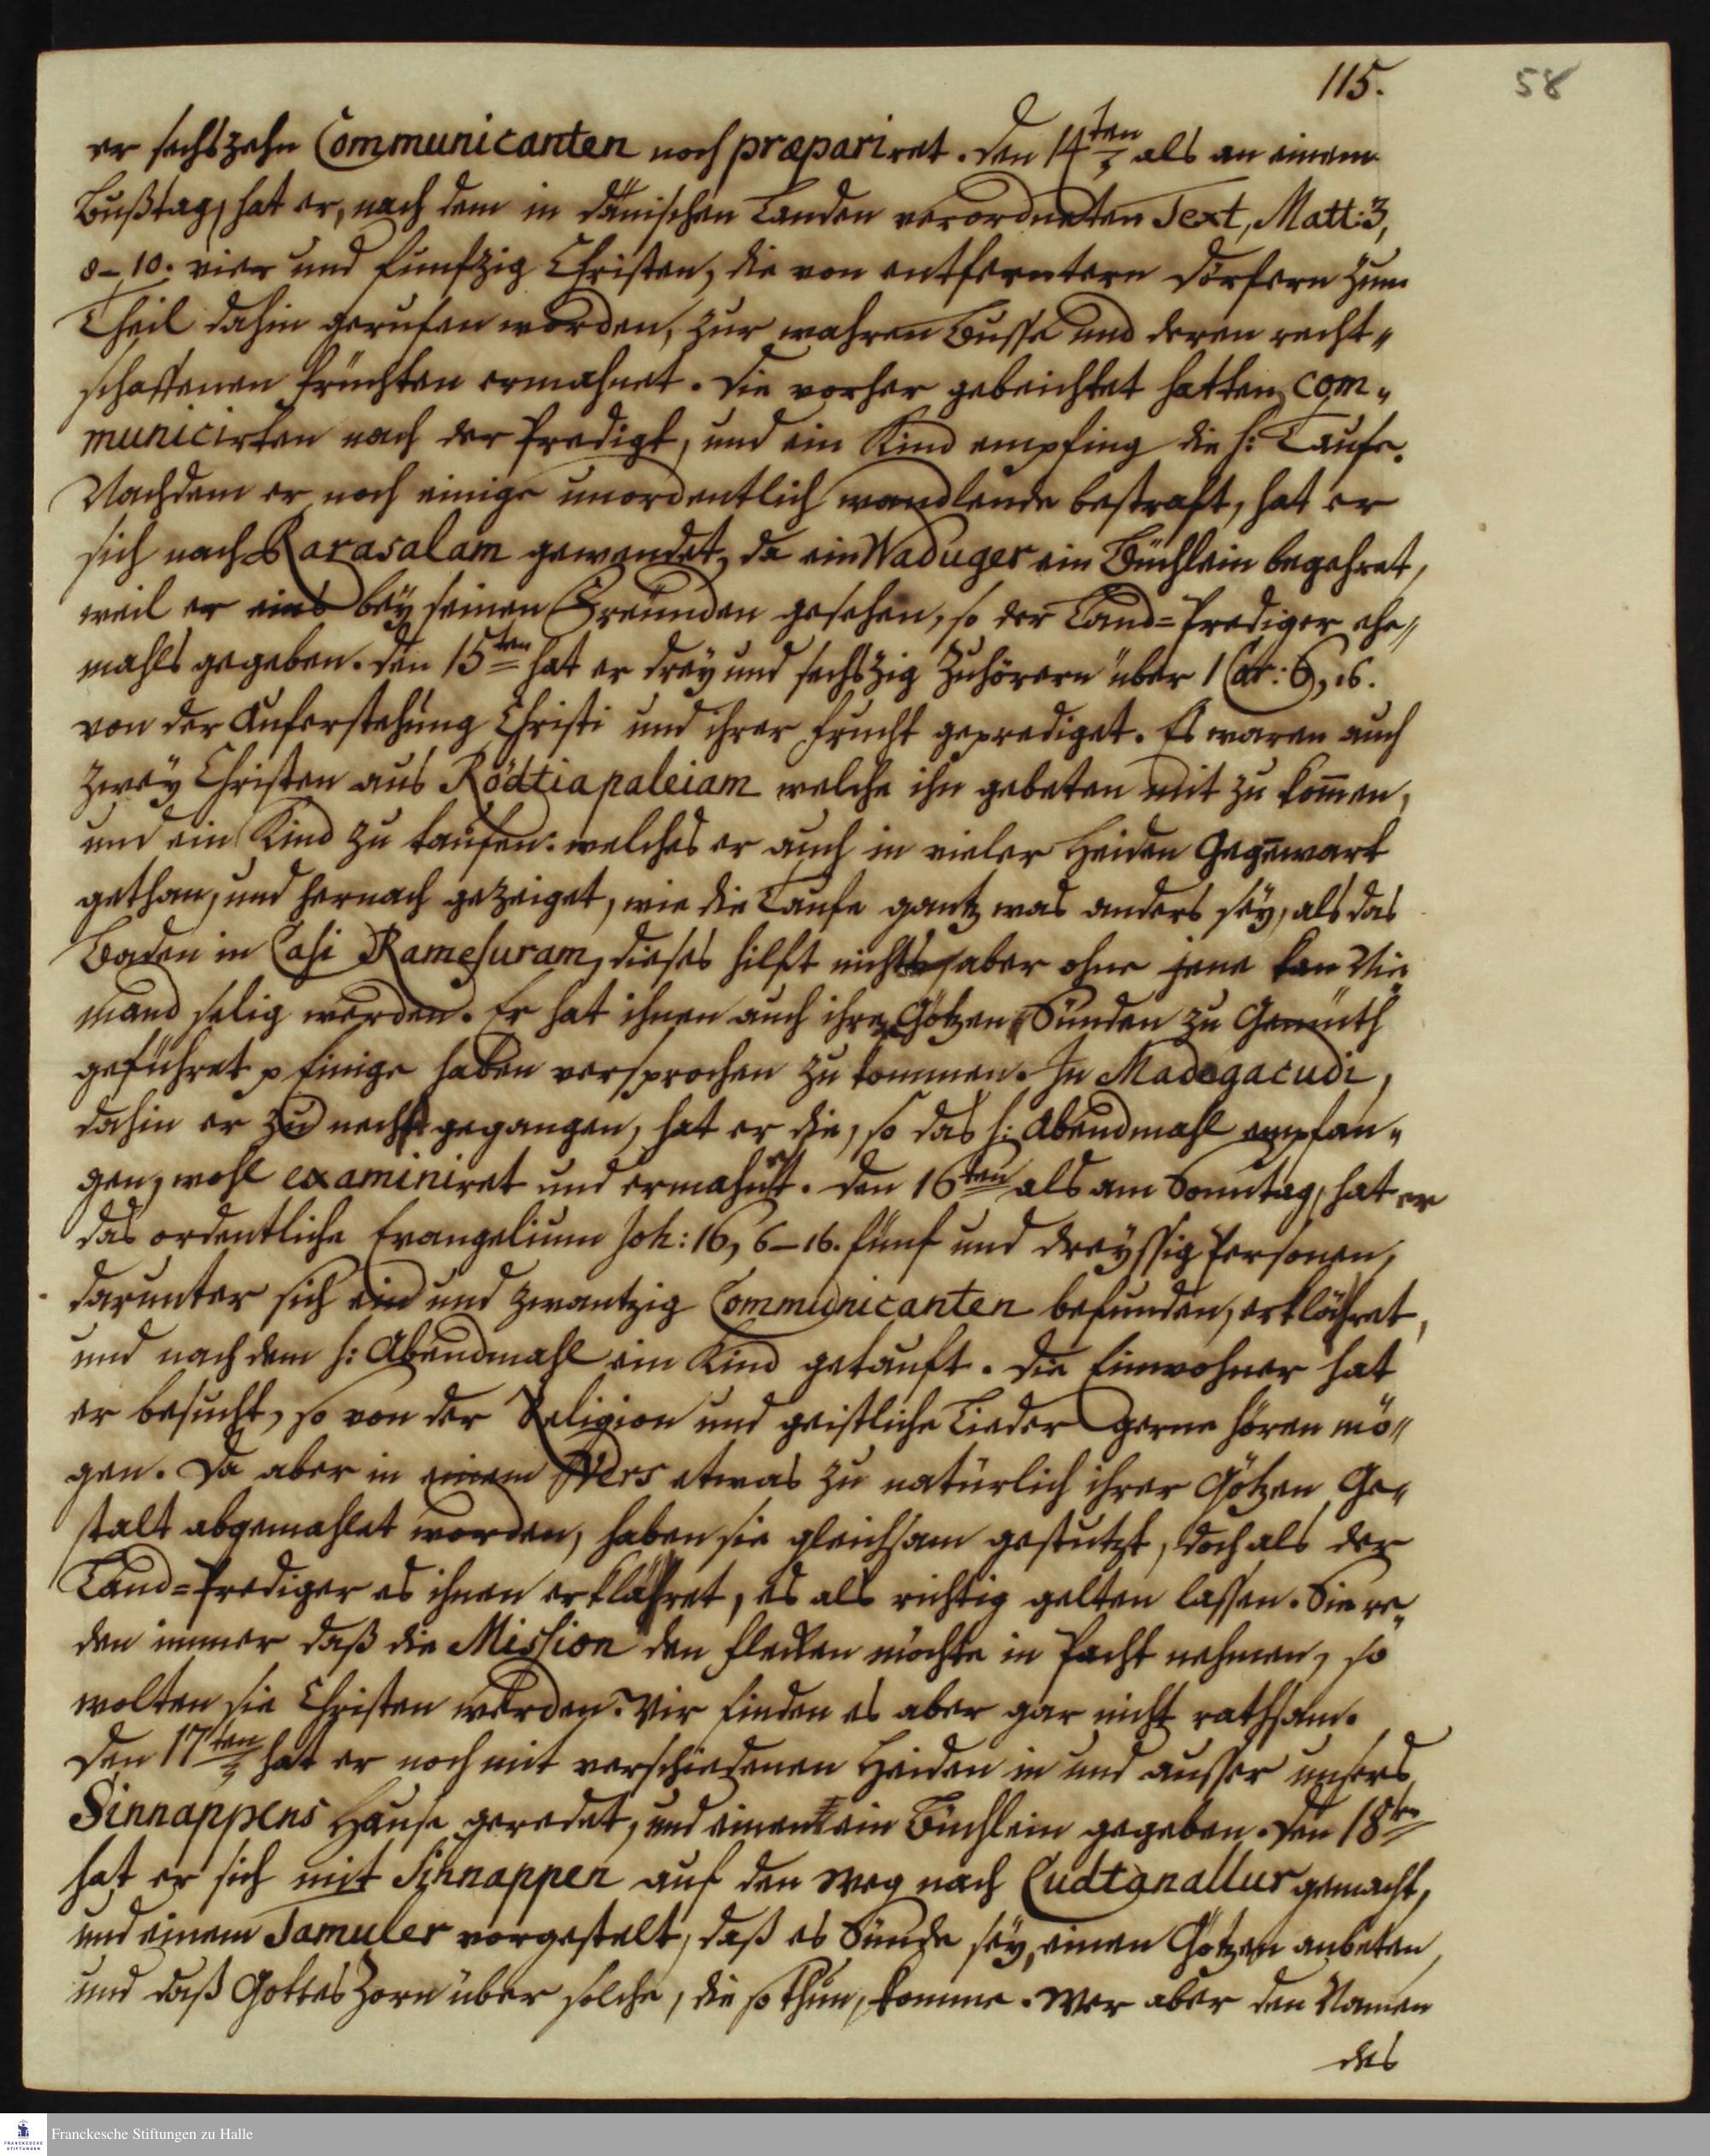 115.
58
er sechszehn Communicanten noch præpariret. Den 14ten als an einem
Bußtag, hat er, nach dem in dänischen Landen verordneten Text, Matt: 3,
8–10. vier und funfzig Christen, die von entferntern Dörfern zum
Theil dahin gerufen worden, zur wahren Busse und deren recht„
schaffenen Früchten ermahnet. Die vorher gebeichtet hatten, com„
municirten nach der Predigt, und ein Kind empfing die h: Taufe.
Nachdem er noch einige unordentlich wandlende bestraft, hat er
sich nach Rarasalam gewendet, da ein Waduger ein Büchlein begehret,
weil er eins bey seinen Freunden gesehen, so der Land=Prediger ehe„
mahls gegeben. Den 15ten hat er drey und sechszig Zuhörern über 1 Cor: 6,
von der Auferstehung Christi und ihrer Frucht geprediget. Es waren auch
zwey Christen aus Rödtiapaleiam welche ihn gebeten mit zu kommen,
und ein Kind zu taufen: welches er auch in vieler Heiden Gegenwart
gethan, und hernach gezeiget, wie die Taufe gantz was anders sey, als das
Baden in Casi Ramesuram, dieses hilft nichts, aber ohne jene kan Nie„
mand selig werden. Er hat ihnen auch ihre Götzen Sünden zu Gemüth
geführet p Einige haben versprochen zu kommen. In Madagacudi,
dahin er zu nechst gegangen, hat er die, so das h: Abendmahl empfan„
gen, wohl examiniret und ermahnet. Den 16ten als am Sonntag, hat er
das ordentliche Evangelium Joh: 16, 6–16. fünf und dreyssig Personen,
darunter sich ein und zwantzig Communicanten befunden, erklähret,
und nach dem h: Abendmahl ein Kind getauft. Die Einwohner hat
er besucht, so von der Religion und geistliche Lieder gerne hören mö„
gen. Da aber in einem Vers etwas zu natürlich ihrer Götzen Ge„
stalt abgemahlet worden, haben sie gleichsam gestutzt, doch als der
Land=Prediger es ihnen erklähret, es als richtig gelten lassen. Sie re„
den immer daß die Mission den Flecken möchte in Pacht nehmen, so
wolten sie Christen werden. Wir finden es aber gar nicht rathsam.
Den 17ten hat er noch mit verschiedenen Heiden in und ausser unsers
Sinnappens Hause geredet, und einem ein Büchlein gegeben. Den 18ten
hat er sich mit Sinnappen auf den Weg nach Cudtanallur gemacht,
und einem Tamuler vorgestelt, daß es Sünde sey, einen Götzen anbeten,
und daß Gottes Zorn über solche, die so thun, komme. Wer aber den Namen
des
FRANCKESCHE
STIFTUNGEN
Franckesche Stiftungen zu Halle